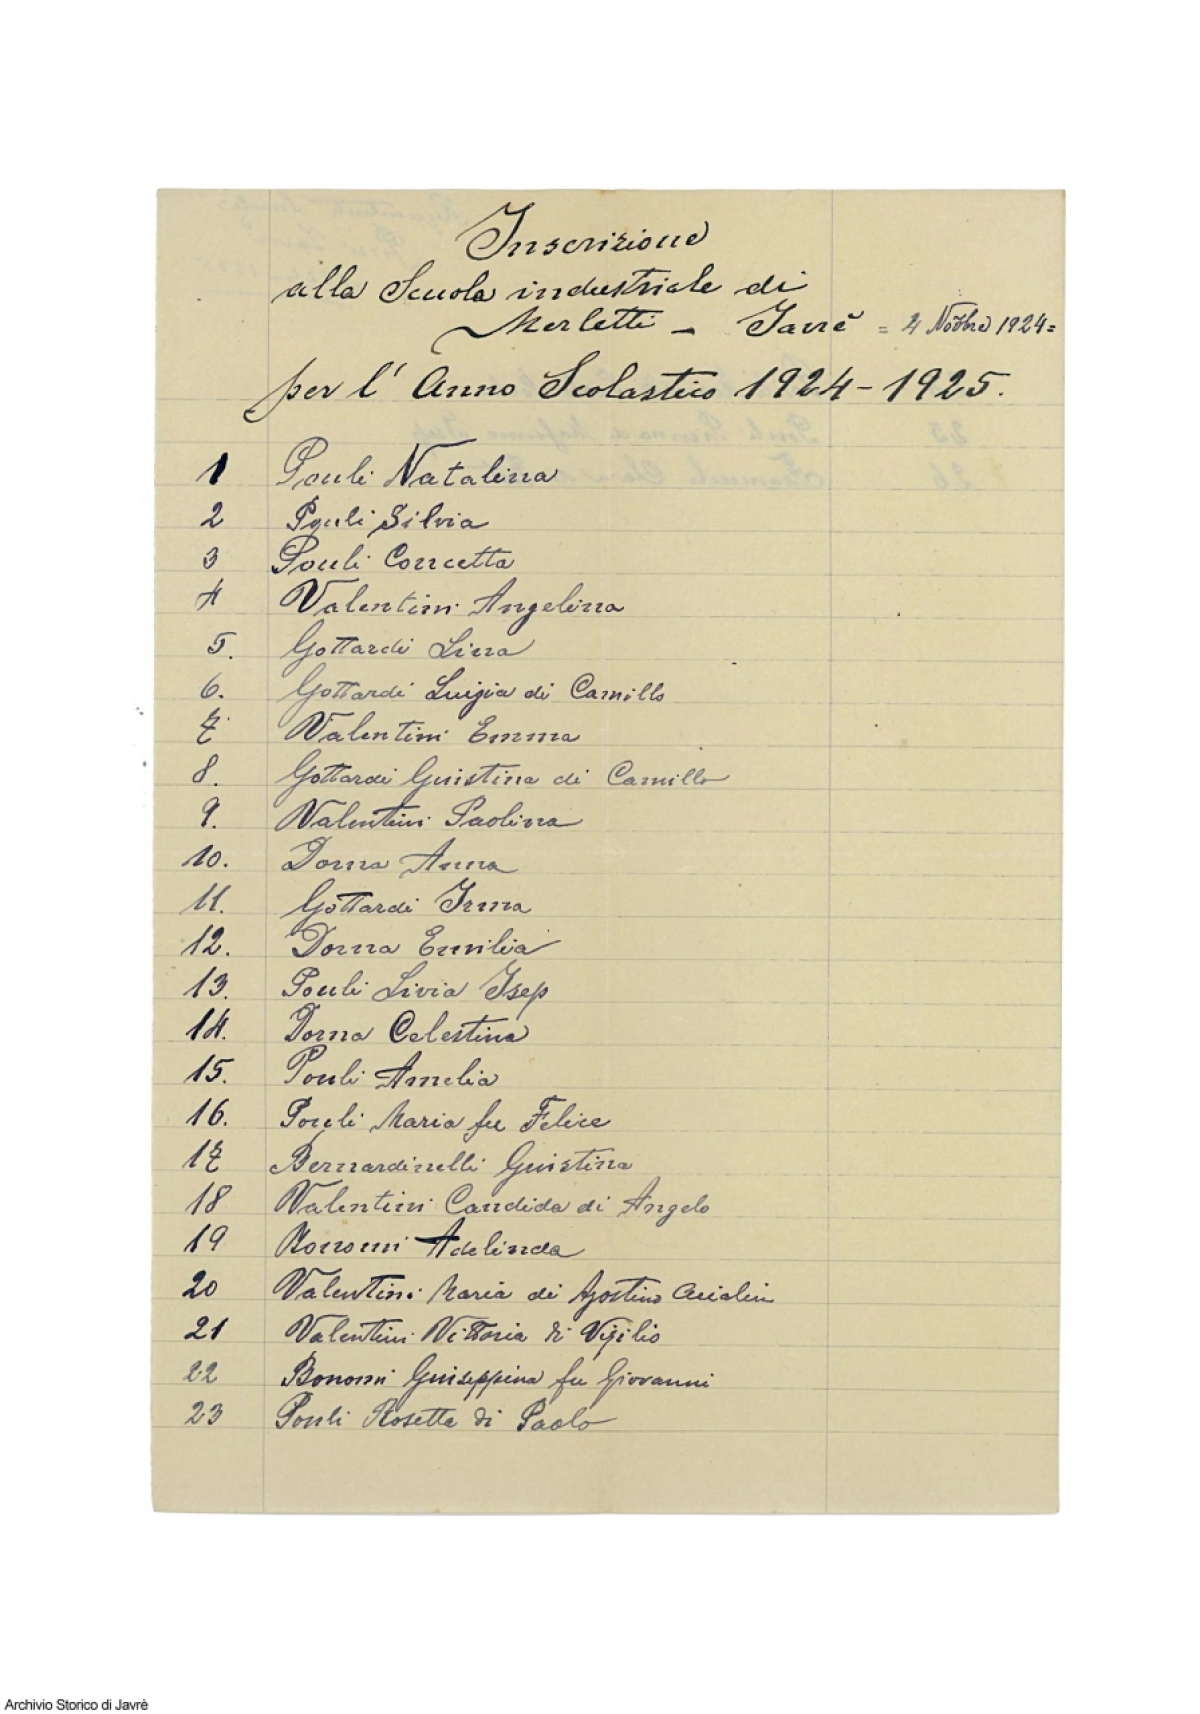 Inscrizione
alla Scuola industriale di
Merletti - Javrè = 4 Nobre 1924=
per l' Anno Scolastico 1924-1925.
1 Pouli Natalina
2 Pouli Silvia
3 Pouli Concetta
4 Valentini Angelina
5. Gottardi Lina
6. Gottardi Luigia di Camillo
7 Valentini Emma
8. Gottardi Guistina di Camillo
9. Valentini Paolina
10. Dorna Anna
11. Gottardi Irma
12. Dorna Emilia
13. Pouli Livia Isep
14. Dorna Celestina
15. Pouli Amelia
16. Pouli Maria fu Felice
17 Bernardinelli Guistina
18 Valentini Candida di Angelo
19 Bonomi Adelinda
20 Valentini Maria di Agostino
21 Valentini Vittoria di Vigilio
22 Bonomi Guiseppina fu Giovanni
23 Pouli Rosetta di Paolo
Archivio Storico di Javrè